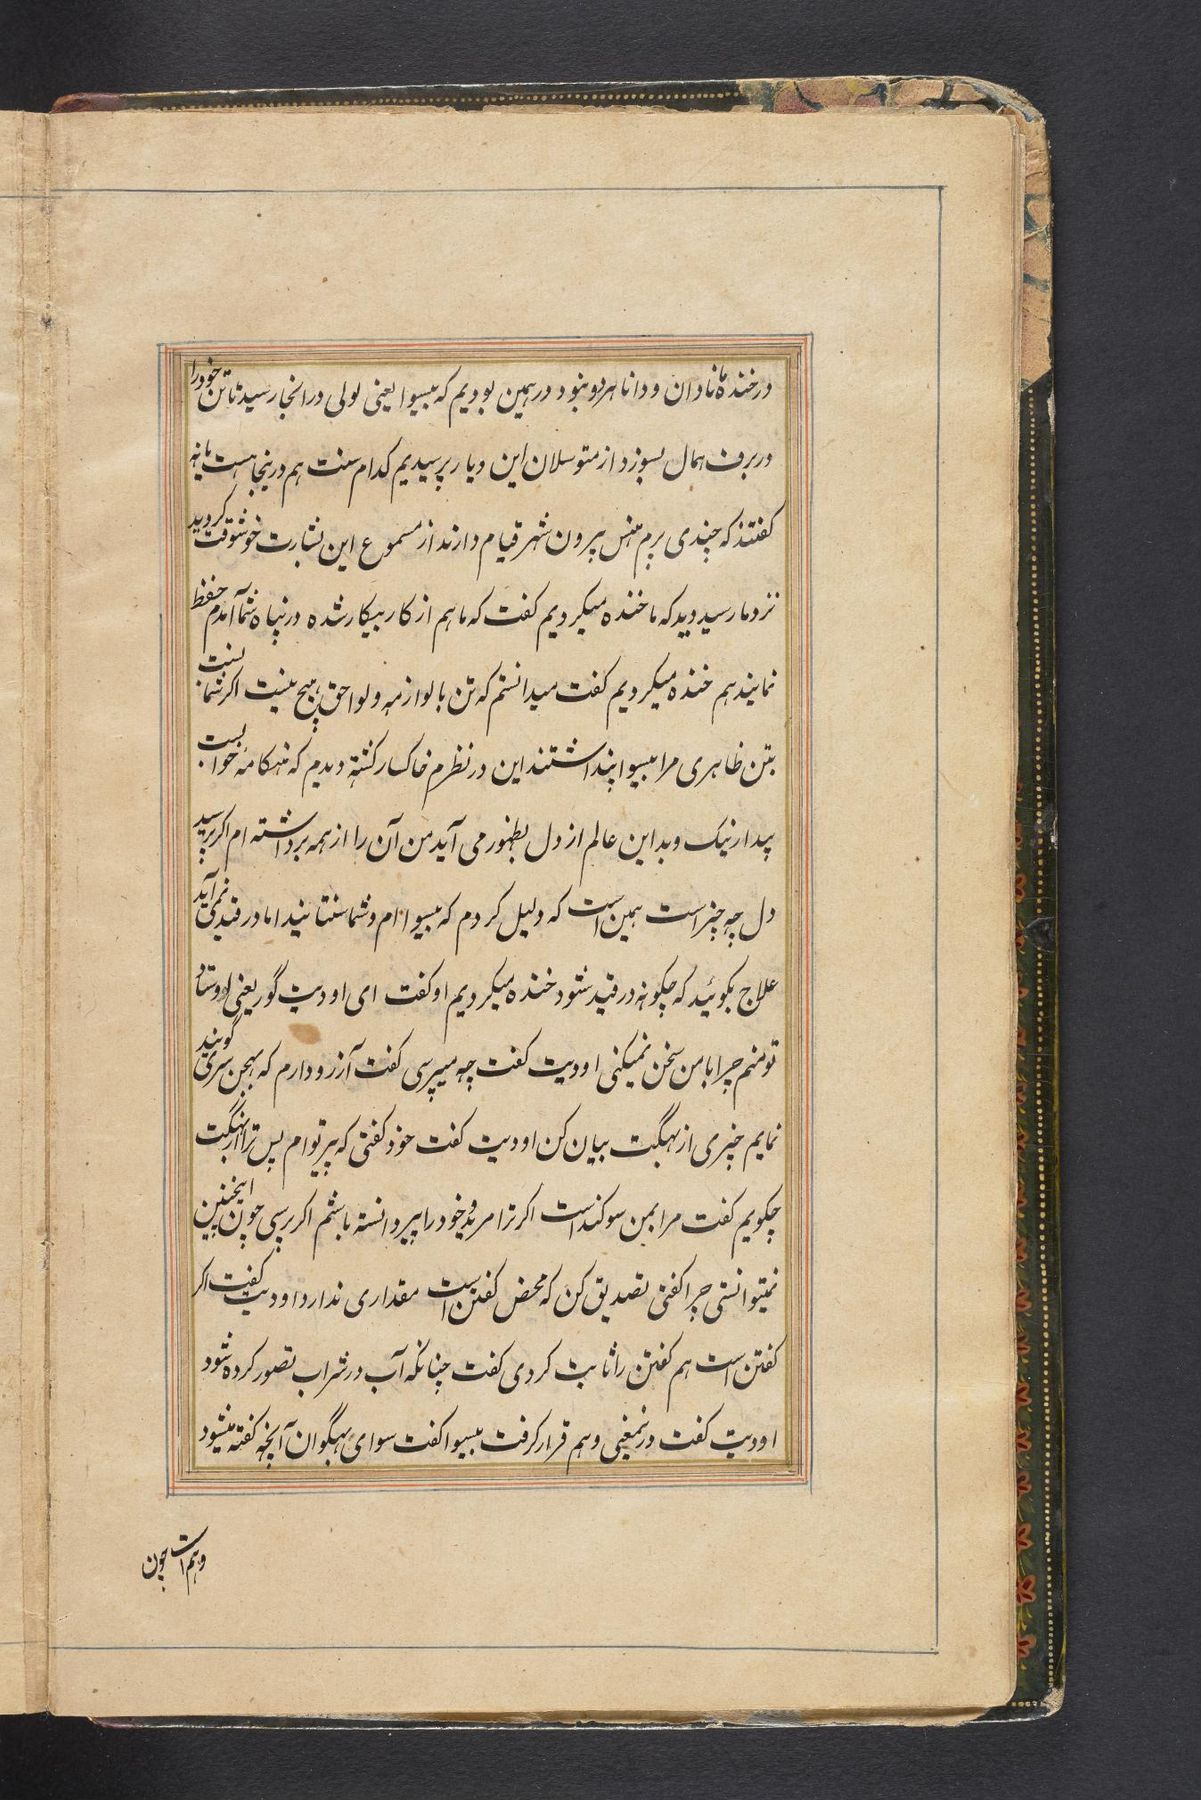 در خنده ما نادان و دانا هر دو نبود در همین بودیم که بیسوا یعنی لولی در آنجا رسید تا تن خود را
در برف همال بسوزد از متوسلان این دیار پرسیدیم کدام سنت هم درینجا هست یا نه
کفتند که چندی برم هنس بیرون شهر قیام دارند از مسموع این بشارت خوشوقت کردید
نزد ما رسید دید که ما خنده میکردیم کفت که ما هم از کار بیکار شده در پناه شما آمدم حفظ
نمایند هم خنده میکردیم کفت میدانستم که تن با لوازمه و لواحق هیچ نیست اکر شما نسبت
بتن ظاهری مرا بیسوا پنداشتند این در نظرم خاکسار کشته دیدم که هنکامه خوابست
پیدار نیک و بد این عالم از دل بظهور می آید من آن را از همه برداشته ام اکر پرسید
دل چه چیز است همین است که دلیل کردم که بیسوا ام و شما سنتانیند اما در قید نمی آید
علاج بکوئید که چکونه در قید شود خنده میکردیم او کفت ای اودیت گور یعنی اوستاد
تو منم چرا با من سخن نمیکنی اودیت کفت چه میپرسی کفت آرزو دارم که بهجن سری گویند
نمایم چیزی از بهگت بیان کن اودیت کفت خود کفتی که پیر تو ام پس ترا از بهگت
چکویم کفت مرا بمن سوکند است اکر ترا مرید و خود را پیر دانسته باشم اکر پرسی چون اینچنین
نمیتوانستی چرا کفتی تصدیق کن که محض کفتن است مقداری ندارد اودیت کفت اکر
کفتن است هم کفتن را ثابت کردی کفت چنانکه آب در شراب تصور کرده شود
اودیت کفت درینمعنی وهم قرار کرفت بیسوا کفت سوای بهگوان آنچه کفته میشود
وهم است چون